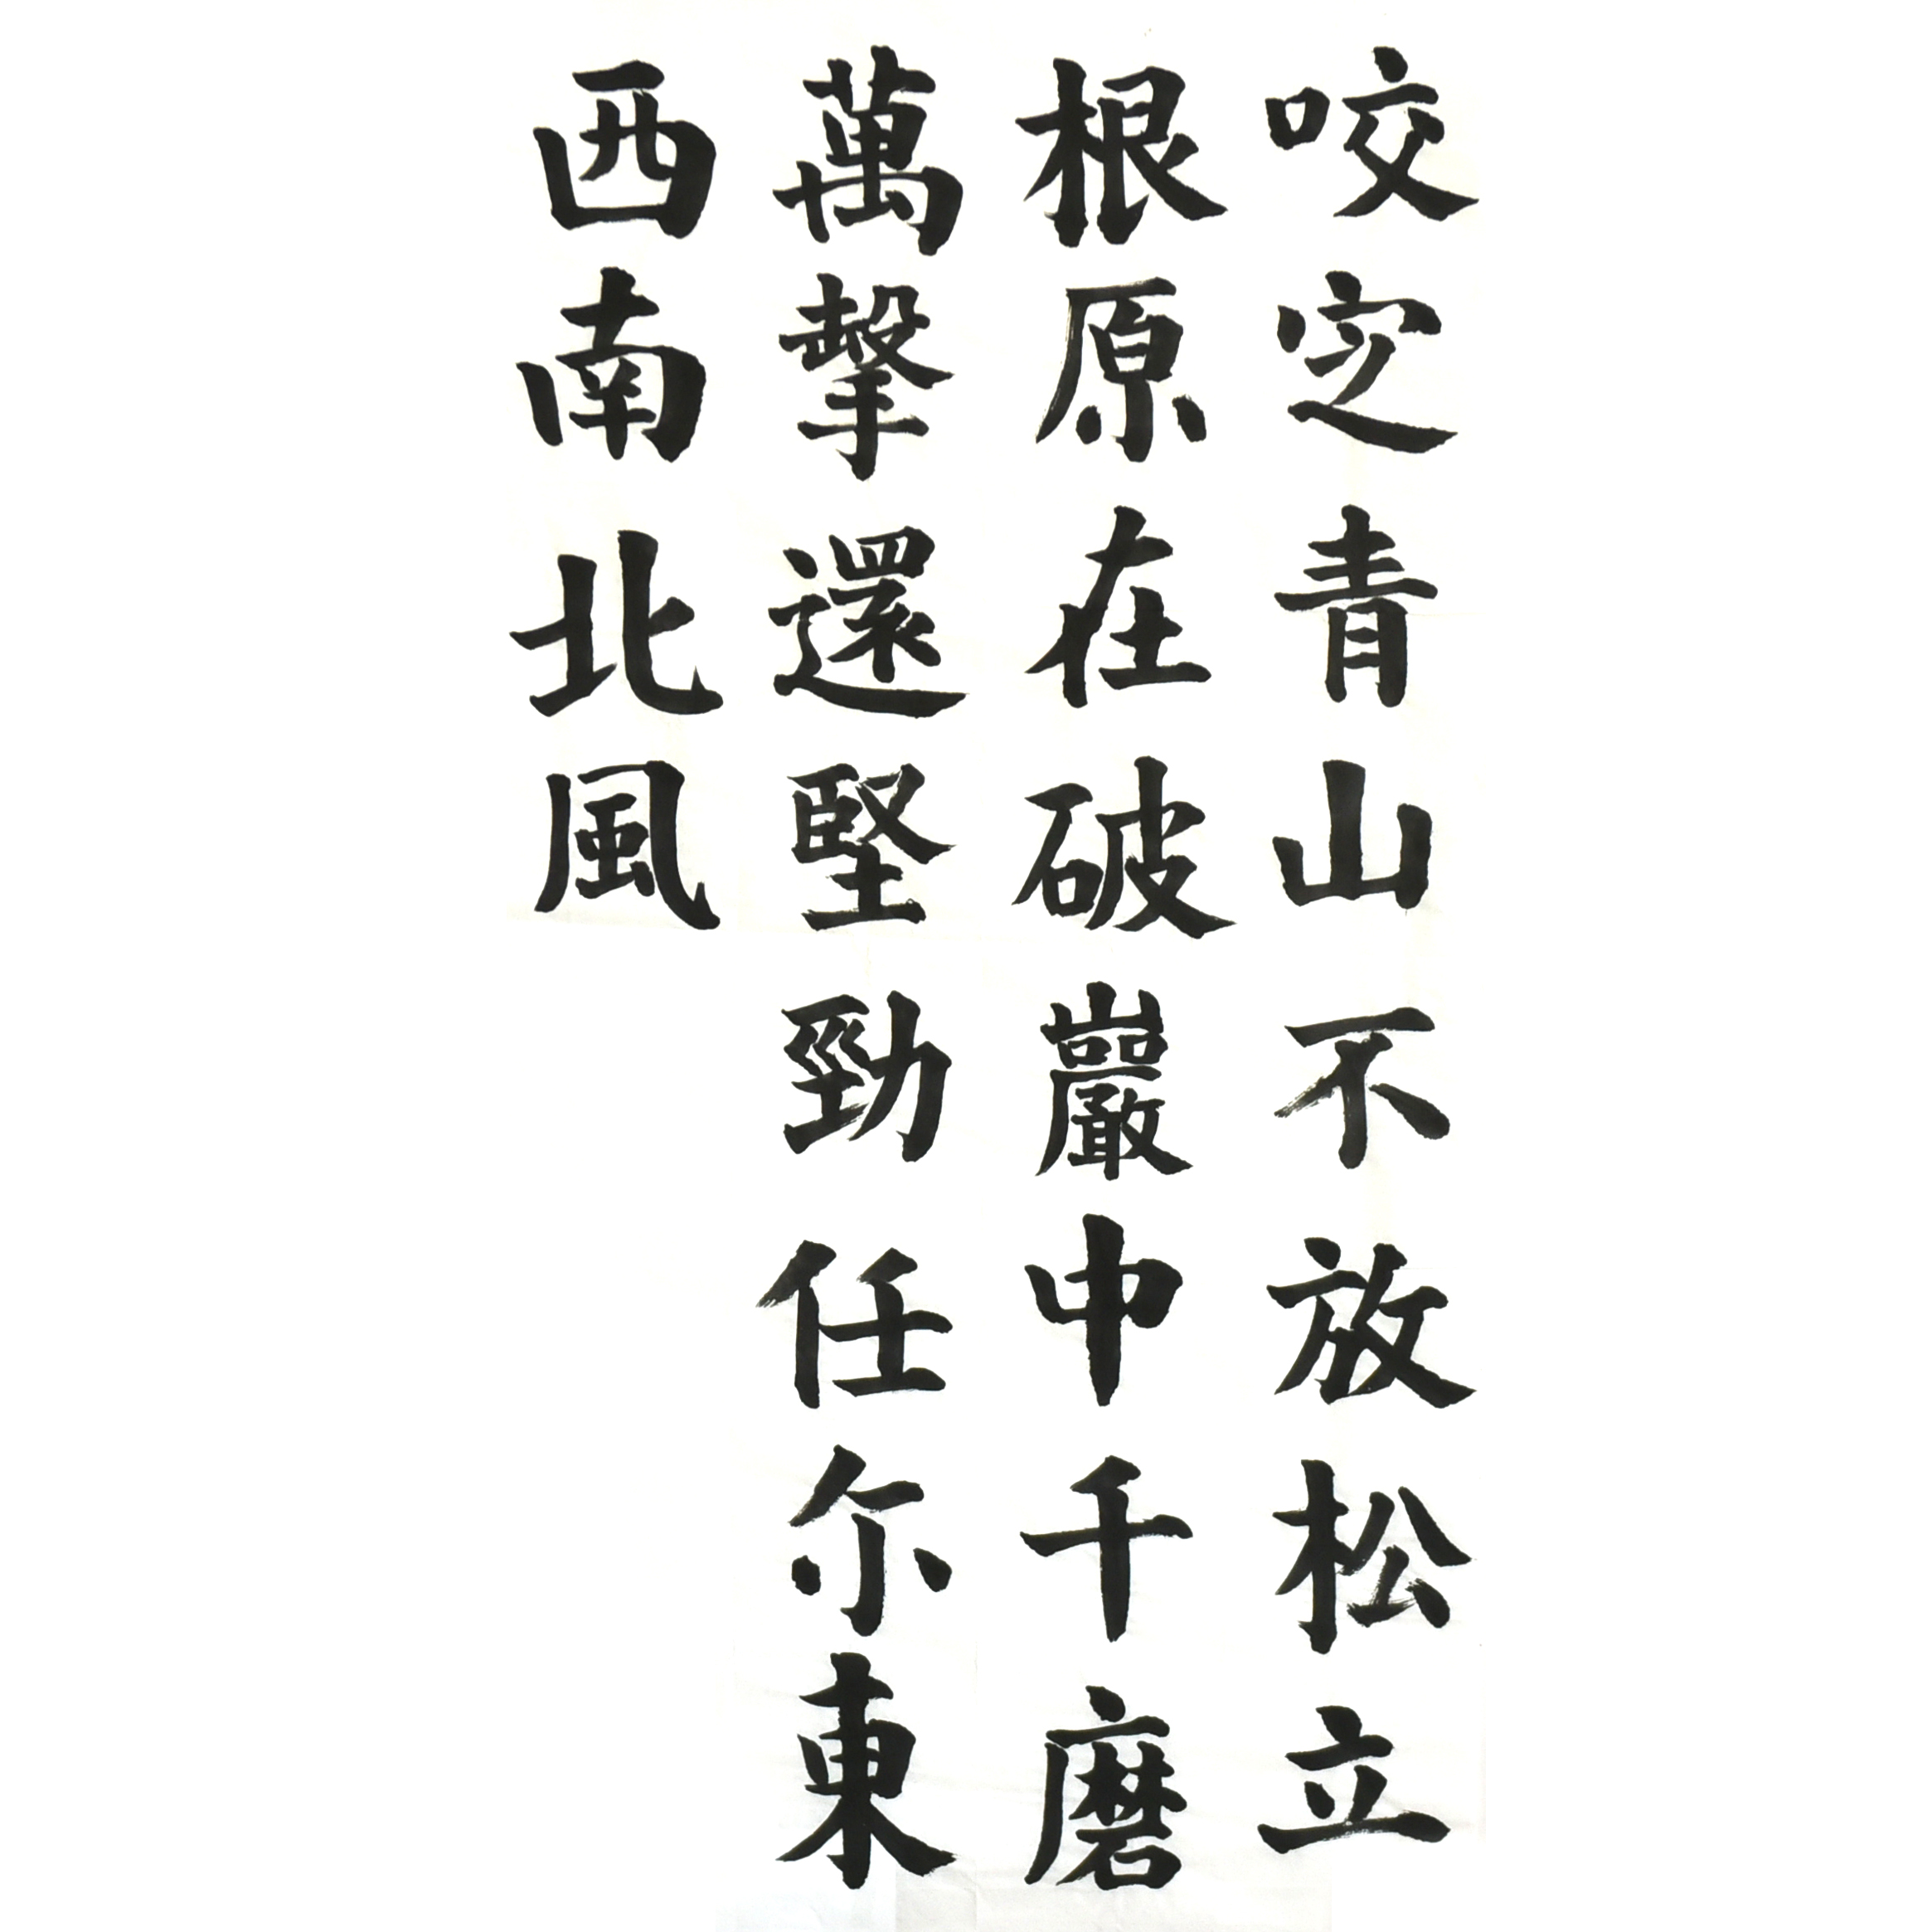 咬定青山不放松立
根原在破巖中千磨
萬擊還堅勁任尔東
西南北風